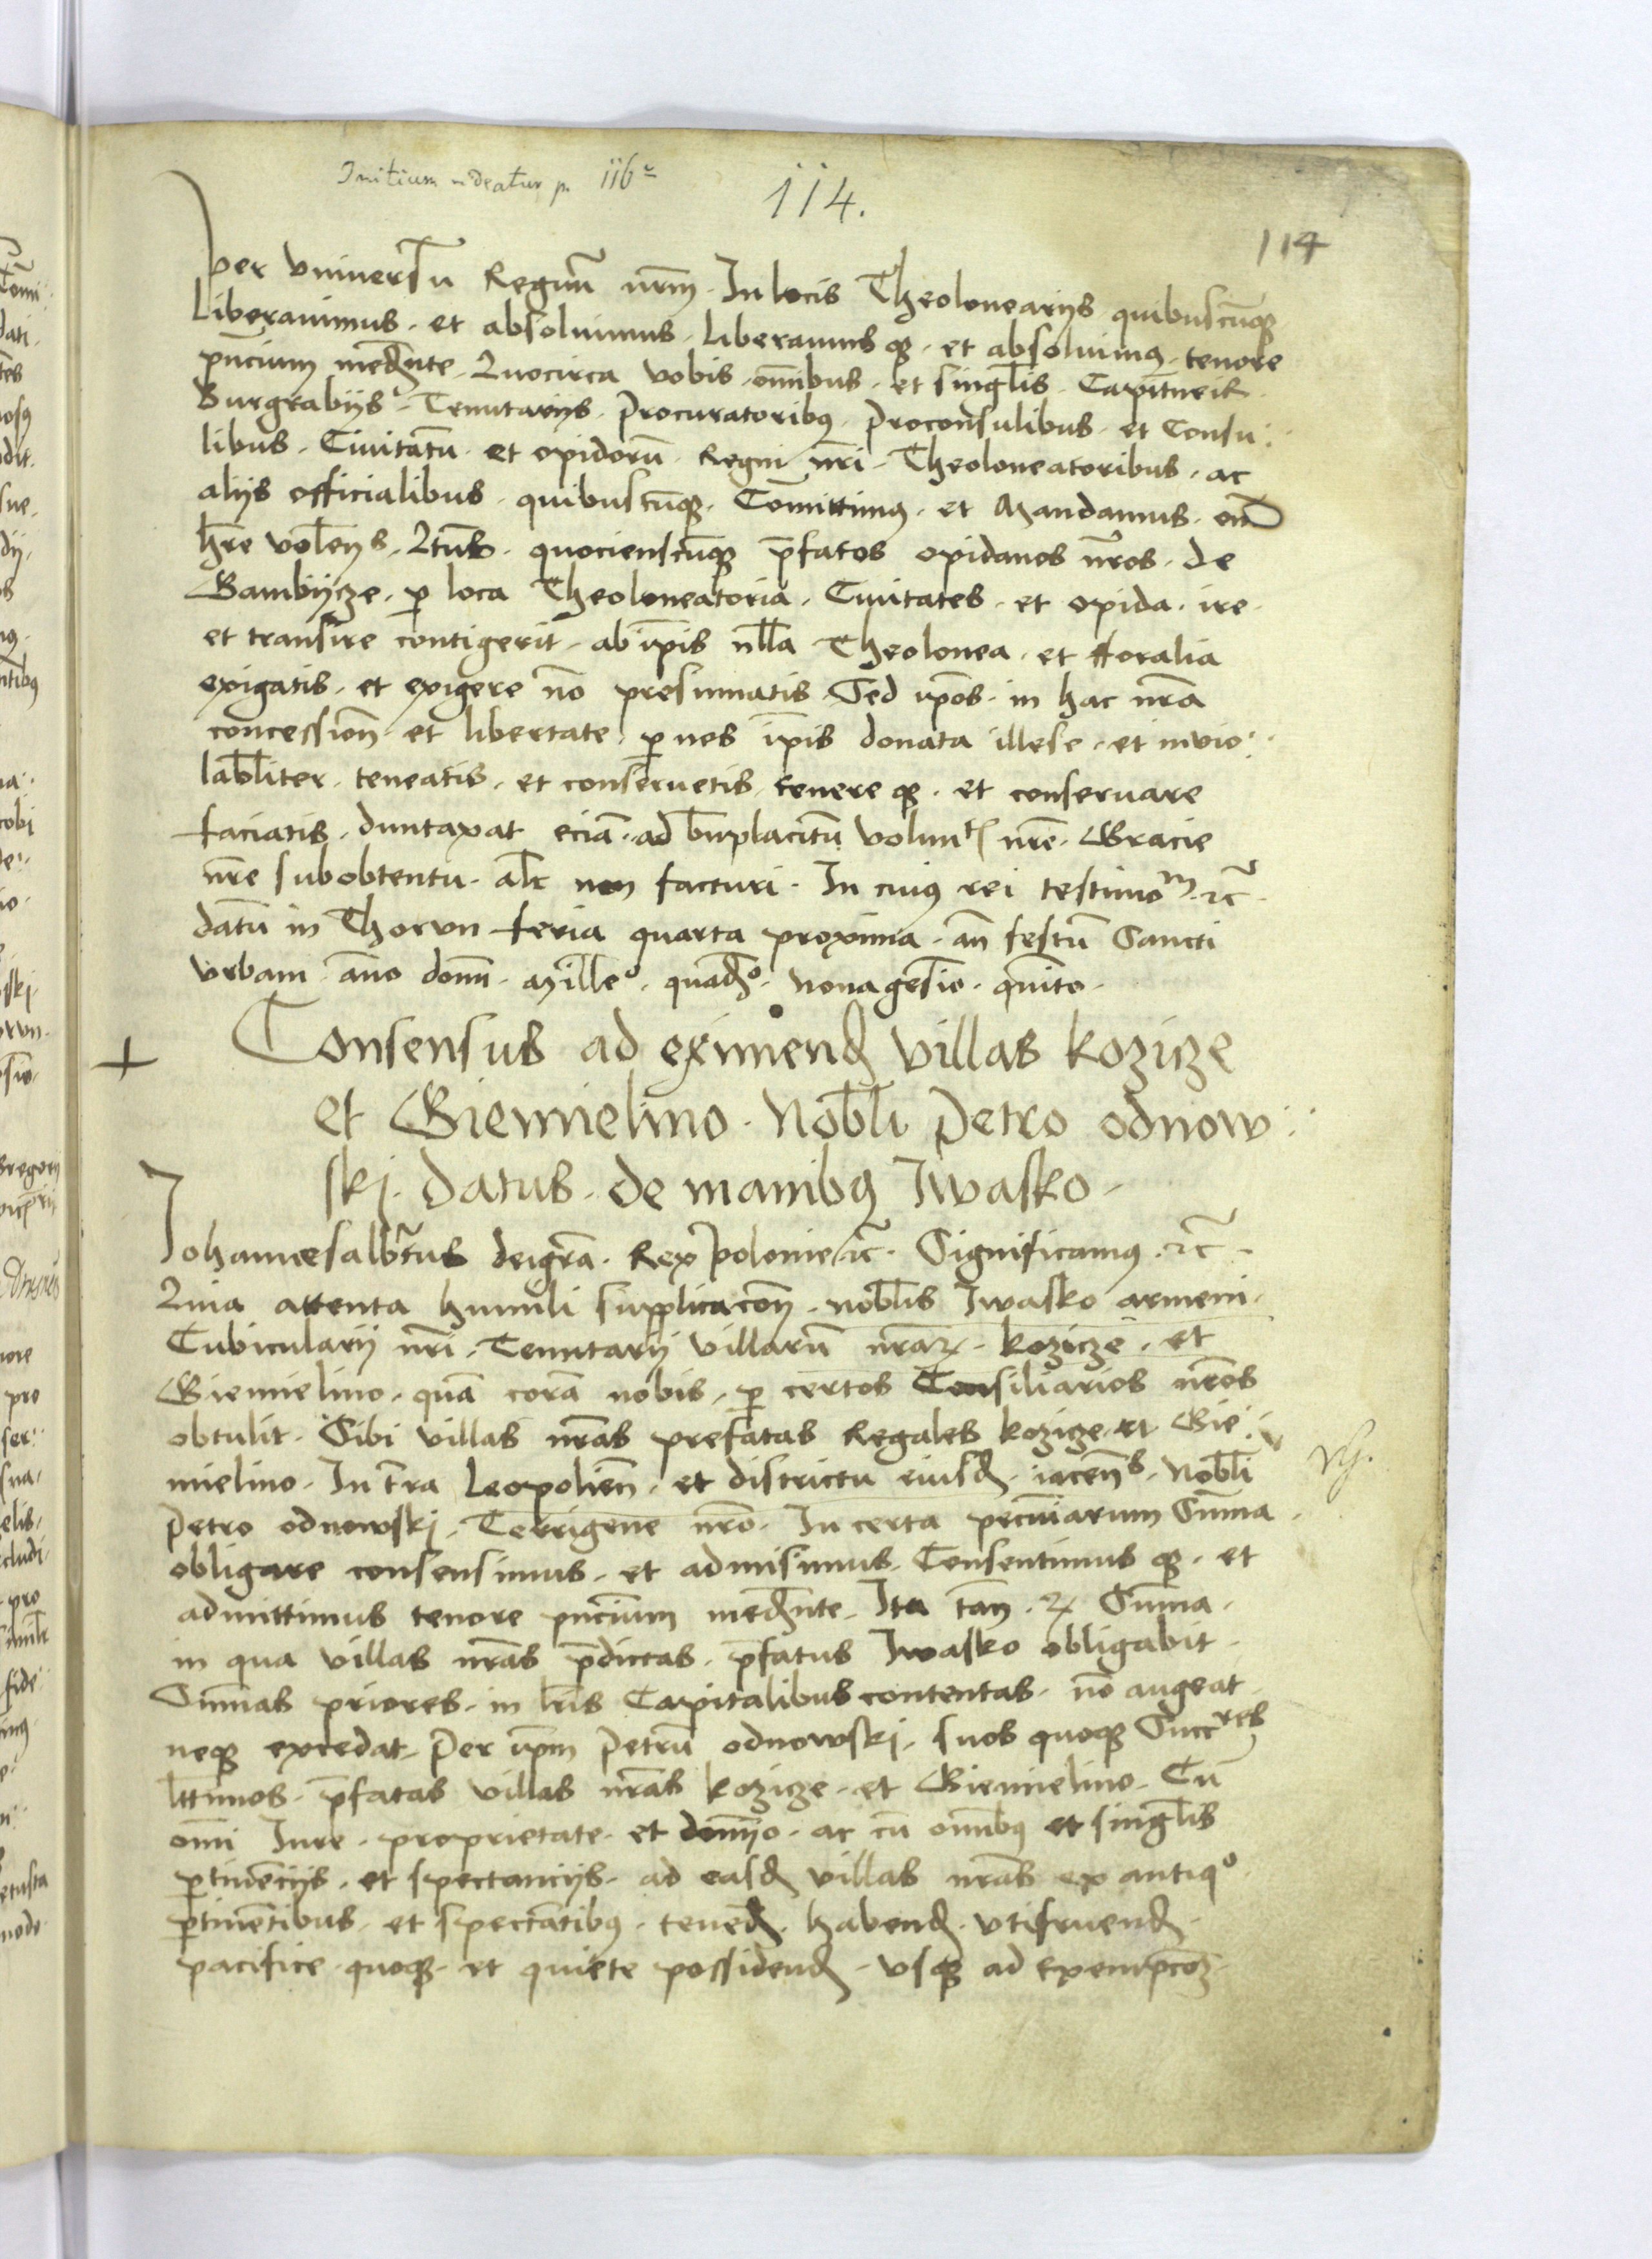 Initium videatur p. 116ᵛ
114.
114
per vniuersū Regnū nr̄m · In locis Theolonearijs quibuscūqꝫ
Liberauimus · et absoluimus · Liberamus qꝫ · et absoluimꝯ · tenore
pn̄cium med̄nte · Quocirca vobis · om̄ibus · et singl̄is · Capitneis
Burgrabijs · Tenutarijs · Procuratoribꝯ · Proconsulibus · et Consu:
libus · Ciuitatū · et opidorū · Regni nr̄i · Theoloneatoribus · ac
alijs officialibus · quibuscūqꝫ · Com̄ittimꝯ · et Mandamus ·
hr̄e volen̄s · quocienscūqꝫ p̄fatos opidanos nr̄os · de
Bambijcze · ꝑ loca Theoloneatoria · Ciuitates · et opida · ire ·
et transire contigerit · ab ip̄is nll̄a Theolonea · et fforalia
exigatis · et exigere nō presumatis · Sed ip̄os · in hac nr̄a
concession̄ et libertate · ꝑ nos ip̄is donata illese · et inuio:
labl̄iter · teneatis · et conseruetis · tenere qꝫ · et conseruare
faciatis · duntaxat eciā · ad bn̄placitū volunt̄ nr̄e · Gracie
nr̄e sub obtentu · al̄r non facturi · In cuiꝯ rei testimoᵐ · ꝛc̄ ·
datū in Thorvn feria quarta proxima · an̄ festū Sancti
vrbani · an̄o domī · Mill̄eᵒ · quadꝫᵒ · nonagesīo · qn̄ito ·
+
Consensus ad eximend̄ villas Kozicze
et Giemielino · Nobl̄i Petro odnow:
skj · datus · de manibꝯ Iwasko ·
Johannesalbr̄tus deigr̄a · Rex Polonie ꝛc̄ · Significamꝯ · ꝛc̄ ·
Quia attenta humili supplicacōn · nobl̄is Iwasko armeni ·
Cubicularij nr̄i · Tenutarij villarū nr̄aꝝ · Kozicze · et
Giemielino · quā corā nobis · ꝑ certos Consiliarios nr̄os
obtulit · Sibi villas nr̄as prefatas Regales Kozicze et Gie:
mielino · In tr̄a Leopolien̄ · et districtu eiusd̄ · iacen̄s · Nobl̄i
Petro odnowskj · Terrigene nr̄o · In certa pecuniarum Sum̄a ·
obligare consensimus · et admisimus · Consentimus qꝫ · et
admittimus tenore pn̄cium med̄nte · Ita tan̄ · ꝙ Sum̄a ·
in qua villas nr̄as p̄dictas · p̄fatus Iwasko obligabit ·
Sum̄as priores · in lr̄is Capitalibus contentas · nō augeat ·
neqꝫ excedat · Per ip̄m Petrū odnowskj · suos quoqꝫ Succʳᵉˢ
lttimos · p̄fatas villas nr̄as Kozicze · et Giemielino · Cū
om̄i Iure · proprietate · et domīo · ac cū om̄ibꝯ et singl̄is
ꝑtinēcijs · et spectancijs · ad easd̄ villas nr̄as ex antiqᵒ ·
ꝑtinētibus · et spectātibꝯ · tened̄ · habend̄ · vtifruend̄ ·
pacifice · quoqꝫ · et quiete possidend̄ · vsqꝫ ad exempcōꝫ ·